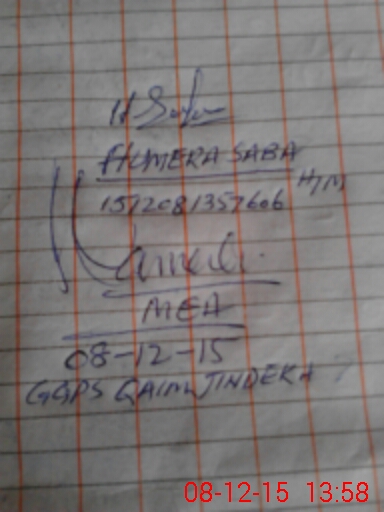 HUMERA SABA
H/M
1512081357606
MEA
08-12-15
GGPS QAIM JINDEKA
08-12-15 13:58